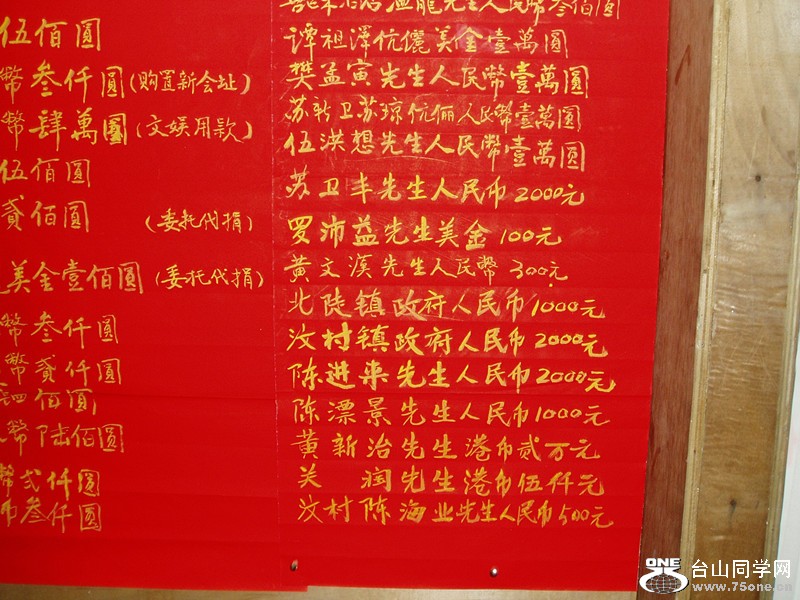 伍佰圓
幣叁仟圓(购置新会址)
幣肆萬圓(文娱用款)
伍佰圓
貳佰圓 (委托代捐)
美金壹佰圓(委托代捐)
幣叁仟圓
幣貳仟圓
四佰圓
幣陆佰圓
幣弍仟圓
币叁仟圓
先生人民幣叁佰圓
谭祖澤伉儷美金壹萬圓
樊孟寅先生人民幣壹萬圓
苏新卫苏琼伉俪人民幣壹萬圓
伍洪想先生人民幣壹萬圓
苏卫丰先生人民币2000元
罗沛益先生美金100元
黄文漢先生人民幣300元
北陡镇政府人民币1000元
汶村镇政府人民币2000元
陈进来先生人民币2000元
陈漂景先生人民币1000元
黄新治先生港币贰万元
关 润先生港币伍仟元
汶村陈海业先生人民币500元
ONE
75
台山同学网
www.75one.cn